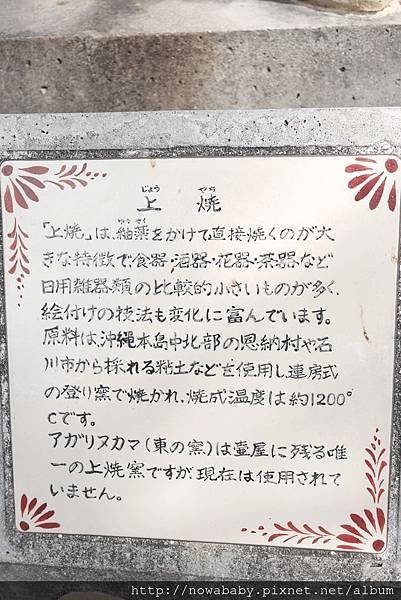 じょう やち
上 焼
ゆう やく
「上焼」は、釉薬をかけて直接焼くのが大
きな特徴で食器・酒器・花器・茶器・など
日用雑器類の比較的小さいものが多く、
絵付けの技法も変化に富んでいます。
原料は、沖縄本島中北部の恩納村や石
川市から採れる粘土などを使用し連房式
の登り窯で焼かれ、焼成温度は約1200°
Cです。
アガリヌカマ(東の窯)は壷屋に残る唯
一の上焼窯ですが、現在は使用されて
いません。
http://nowababy.pixnet.net/album